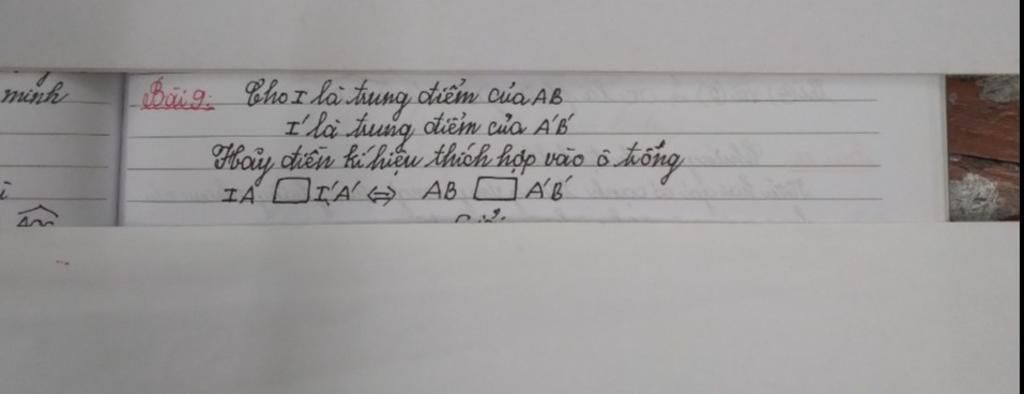 minh
Bài 9: Cho I là trung điểm của AB
I' là trung điểm của A'B'
Hãy điền kí hiệu thích hợp vào ô trống
IA □ I'A' ⇔ AB □ A'B'